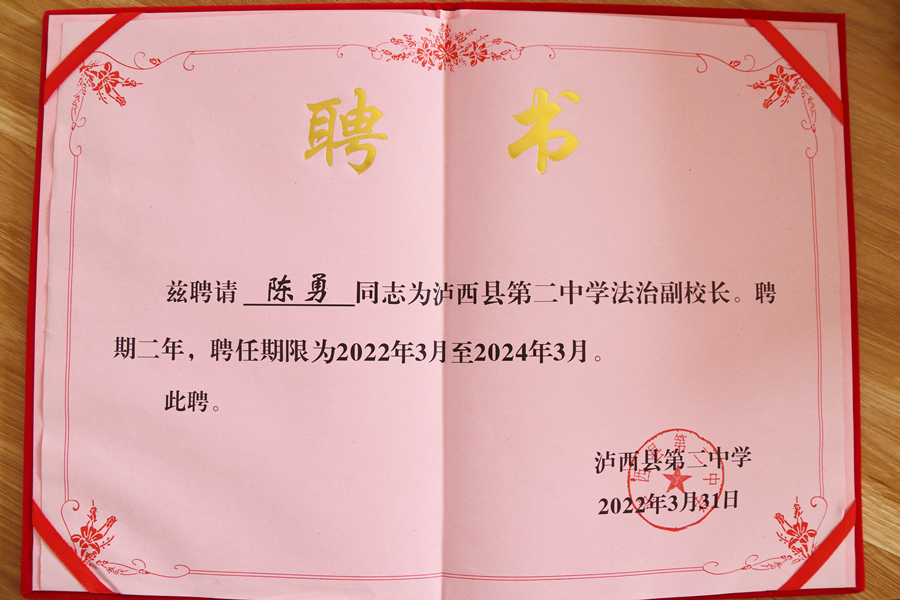 聘书
兹聘请 陈勇 同志为泸西县第二中学法治副校长。聘
期二年，聘任期限为2022年3月至2024年3月。
此聘。
泸西县第二中学
2022年3月31日